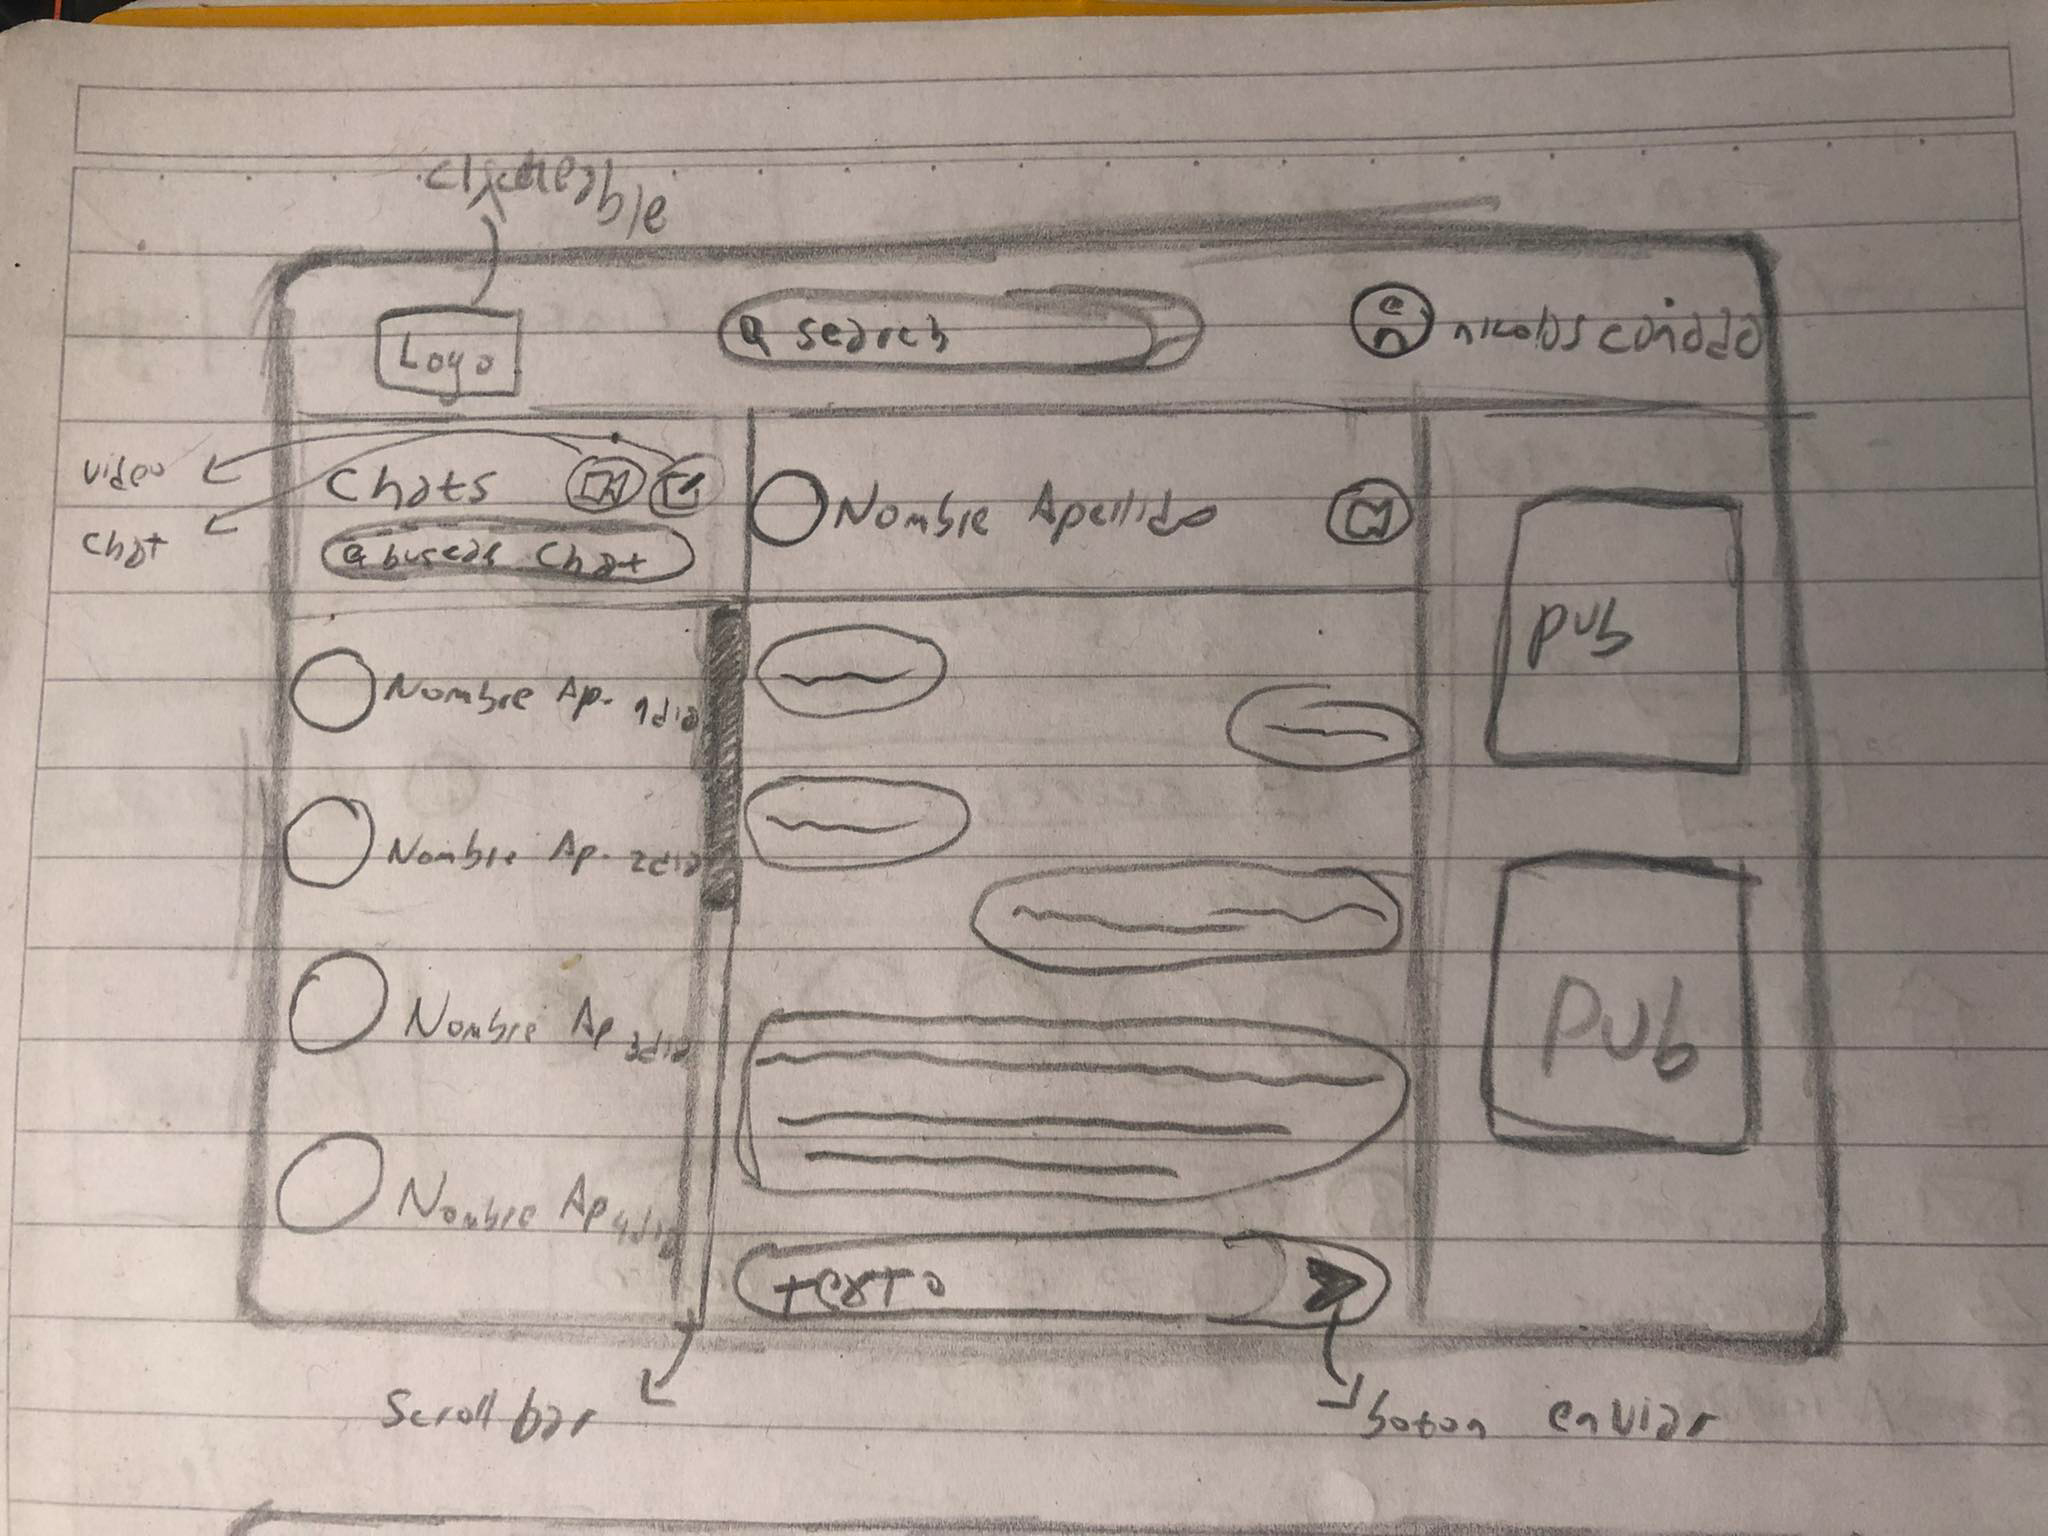 clickeable
Logo
search
nikolas cañada
video
Chats
chat
buscar chat
Nombre Apellido
pub
Nombre Ap. 1dia
Nombre Ap. 2dia
Nombre Ap 3dia
pub
Nombre Ap 4dia
texto
Scroll bar
boton enviar